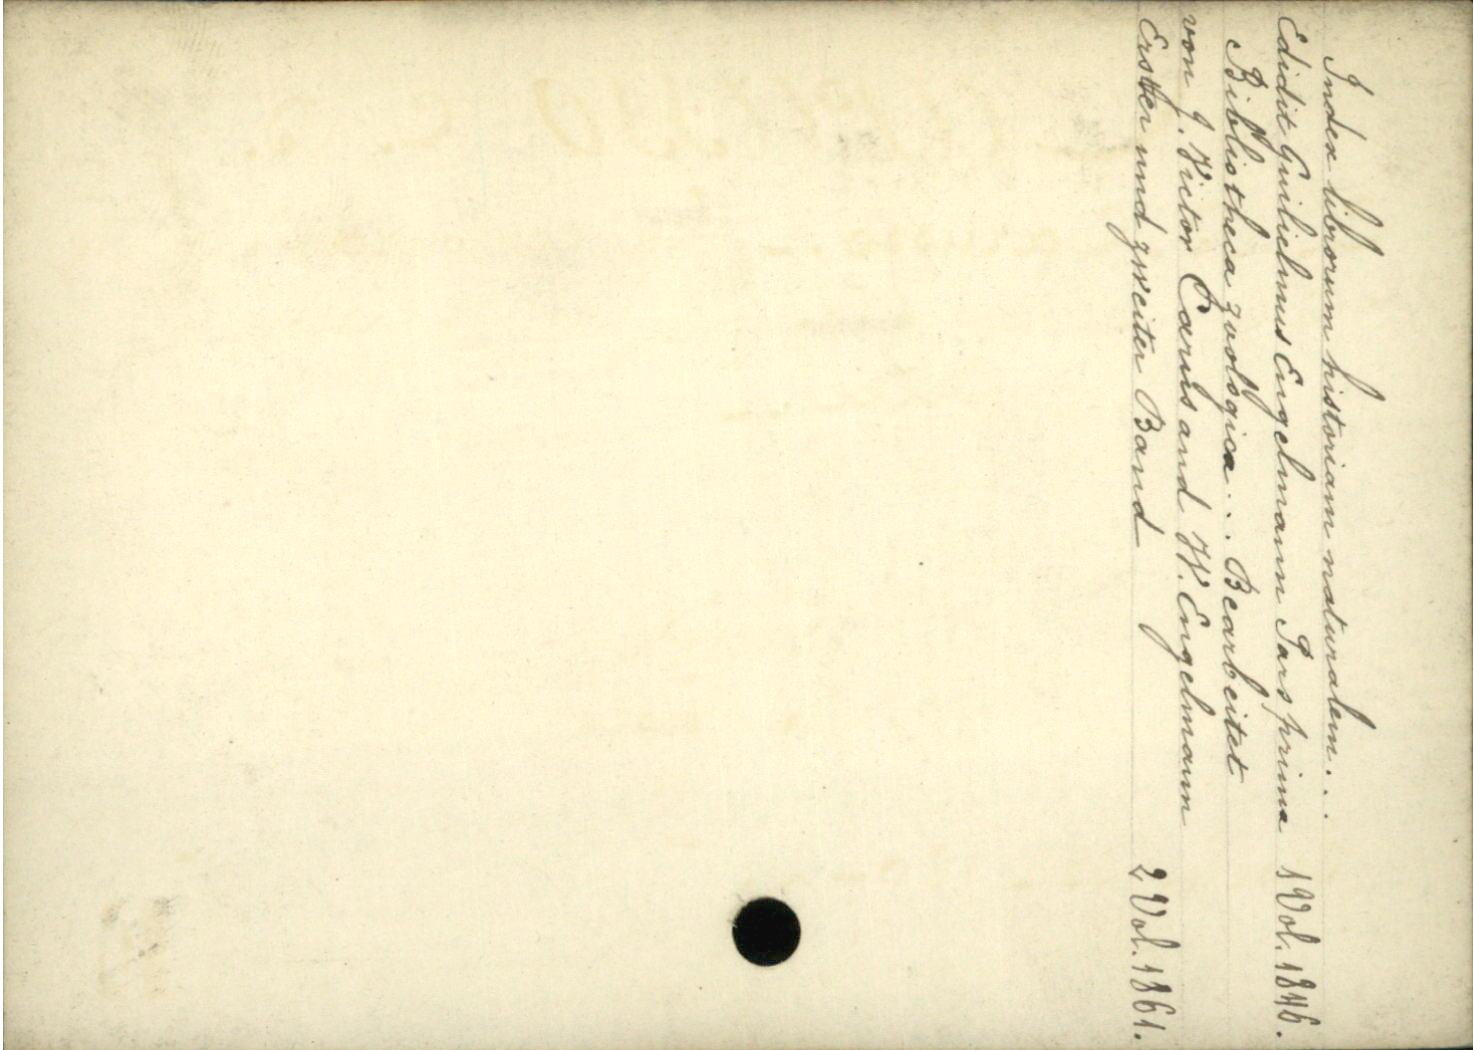 Index librorum historiam naturalem...
Edidit Guilielmus Engelmann Pars prima 1 Vol. 1846.
Bibliotheca zoologica... Bearbeitet
von J. Victor Carus and W. Engelmann
Erster und zweiter Band 2 Vol. 1861.